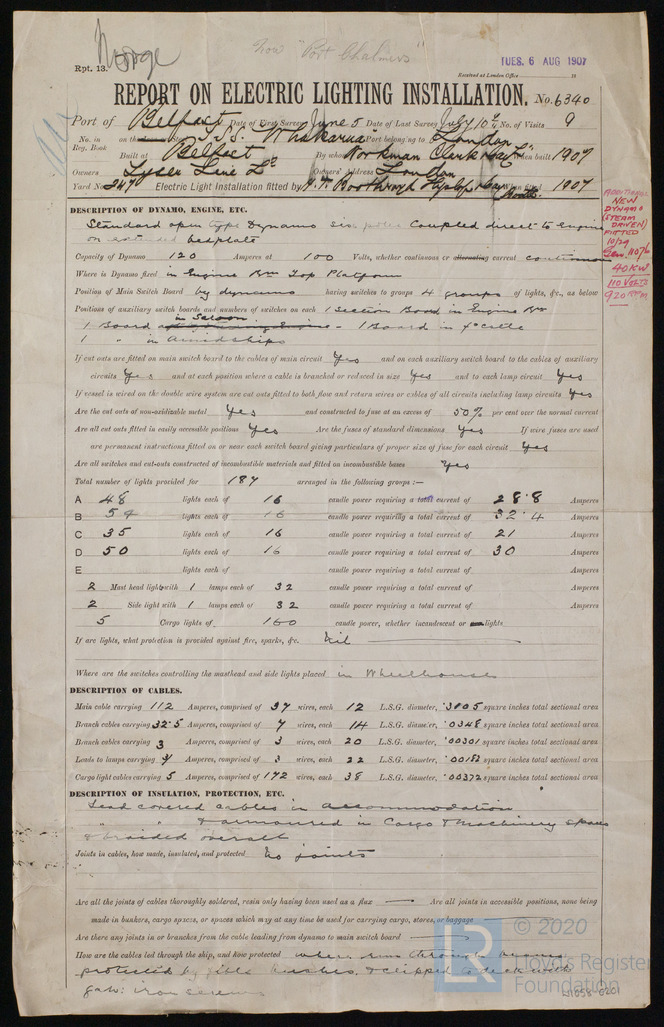 now "Port Chalmers"
Rpt. 13.
TUES. 6 AUG 1907
Received at London Office 19
REPORT ON ELECTRIC LIGHTING INSTALLATION. No. 6340
Port of Belfast Date of First Survey June 5 Date of Last Survey July 10th No. of Visits 9
No. in Reg. Book on the S.S. "Whakarua" Port belonging to London
Built at Belfast By whom Workman Clark & Co Ld When built 1907
Owners Tyser Line Ld Owners' Address London
Yard No. 247 Electric Light Installation fitted by When fitted 1907
DESCRIPTION OF DYNAMO, ENGINE, ETC.
Standard open type Dynamo six poles Coupled direct to engine
on extended bedplate
ADDITIONAL
NEW
DYNAMO
(STEAM
DRIVEN)
FITTED
10/29
40KW
110 VOLTS
920 RPM
Capacity of Dynamo 120 Amperes at 100 Volts, whether continuous or alternating current continuous
Where is Dynamo fixed in Engine Rm Top Platform
Position of Main Switch Board by dynamo having switches to groups 4 groups of lights, &c., as below
Positions of auxiliary switch boards and numbers of switches on each 1 Section Board in Engine Rm
in Saloon
1 Board - 1 Board in F'castle
1 " in Amidships
If cut outs are fitted on main switch board to the cables of main circuit Yes and on each auxiliary switch board to the cables of auxiliary
circuits Yes and at each position where a cable is branched or reduced in size Yes and to each lamp circuit Yes
If vessel is wired on the double wire system are cut outs fitted to both flow and return wires or cables of all circuits including lamp circuits Yes
Are the cut outs of non-oxidizable metal Yes and constructed to fuse at an excess of 50% per cent over the normal current
Are all cut outs fitted in easily accessible positions Yes Are the fuses of standard dimensions Yes If wire fuses are used
are permanent instructions fitted on or near each switch board giving particulars of proper size of fuse for each circuit Yes
Are all switches and cut-outs constructed of incombustible materials and fitted on incombustible bases Yes
Total number of lights provided for 187 arranged in the following groups :—
A 48 lights each of 16 candle power requiring a total current of 28.8 Amperes
B 54 lights each of 16 candle power requiring a total current of 32.4 Amperes
C 35 lights each of 16 candle power requiring a total current of 21 Amperes
D 50 lights each of 16 candle power requiring a total current of 30 Amperes
E lights each of candle power requiring a total current of Amperes
2 Mast head light with 1 lamps each of 32 candle power requiring a total current of Amperes
2 Side light with 1 lamps each of 32 candle power requiring a total current of Amperes
5 Cargo lights of 160 candle power, whether incandescent or lights
If arc lights, what protection is provided against fire, sparks, &c. Nil
Where are the switches controlling the masthead and side lights placed in Wheelhouse
DESCRIPTION OF CABLES.
Main cable carrying 112 Amperes, comprised of 37 wires, each 12 L.S.G. diameter, .3005 square inches total sectional area
Branch cables carrying 32.5 Amperes, comprised of 7 wires, each 14 L.S.G. diameter, .0348 square inches total sectional area
Branch cables carrying 3 Amperes, comprised of 3 wires, each 20 L.S.G. diameter, .00301 square inches total sectional area
Leads to lamps carrying Amperes, comprised of 3 wires, each 22 L.S.G. diameter, .00182 square inches total sectional area
Cargo light cables carrying 5 Amperes, comprised of 172 wires, each 38 L.S.G. diameter, .00372 square inches total sectional area
DESCRIPTION OF INSULATION, PROTECTION, ETC.
Lead covered cables in accommodation
" " & armoured in Cargo & Machinery spaces
& braided overall
Joints in cables, how made, insulated, and protected No joints
Are all the joints of cables thoroughly soldered, resin only having been used as a flux — Are all joints in accessible positions, none being
made in bunkers, cargo spaces, or spaces which may at any time be used for carrying cargo, stores, or baggage —
Are there any joints in or branches from the cable leading from dynamo to main switch board —
How are the cables led through the ship, and how protected where run through beams
protected by fibre bushes, & clipped to deck with
galv: iron screws
LR © 2020
Lloyd's Register
Foundation
W1058-0201